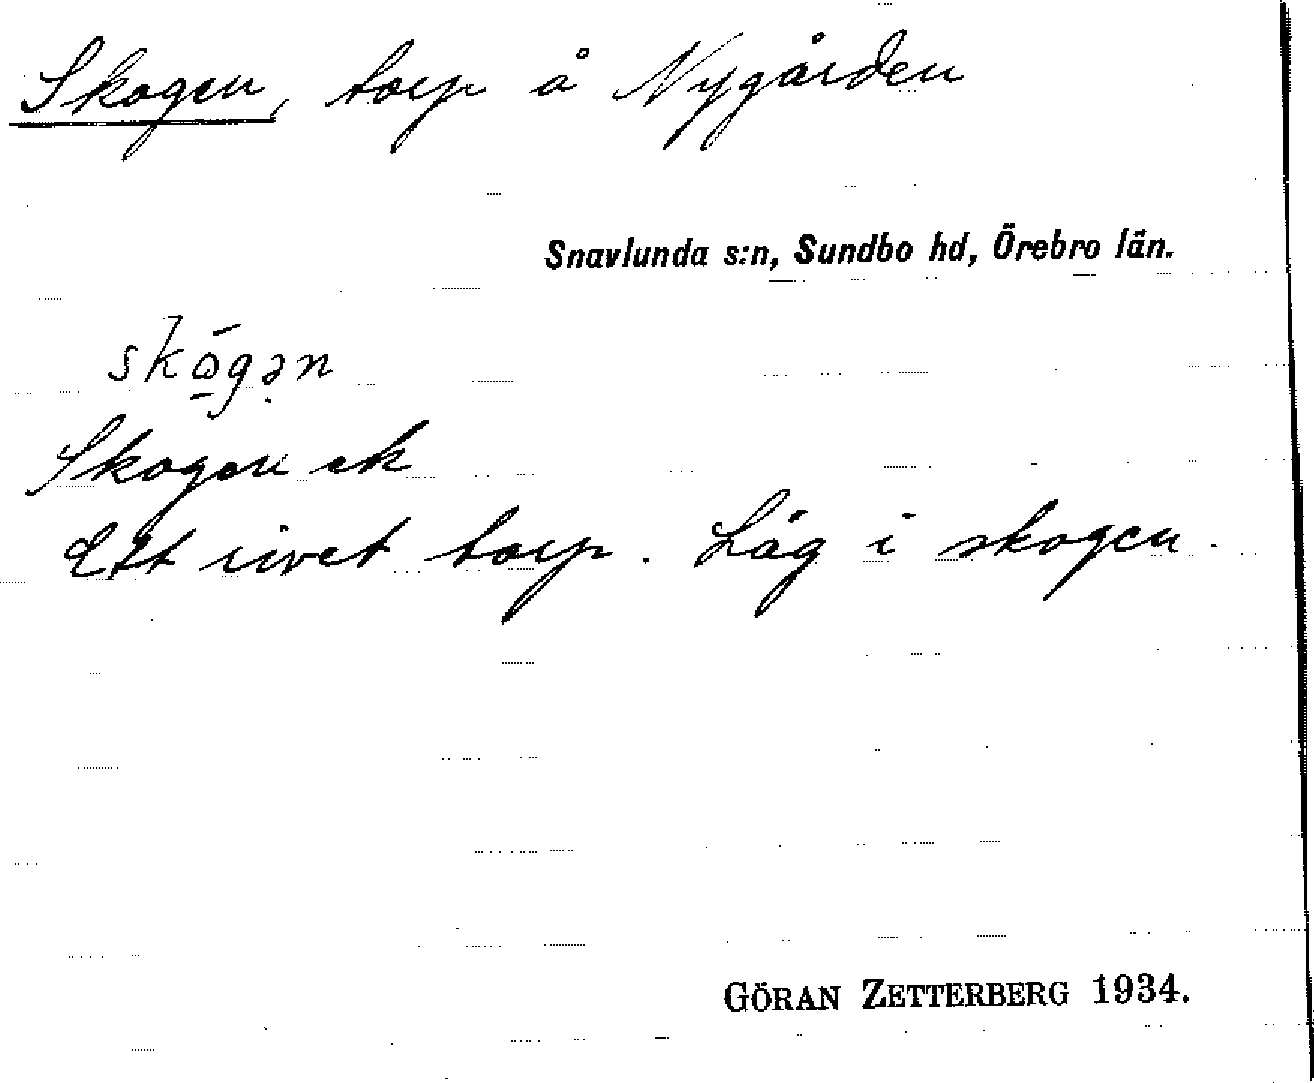 Skogen, torp å Nygården
Snavlunda s:n, Sundbo hd, Örebro län.
skọ̄́gən
Skogen ek
Ett rivet torp. Låg i skogen.
GÖRAN ZETTERBERG 1934.